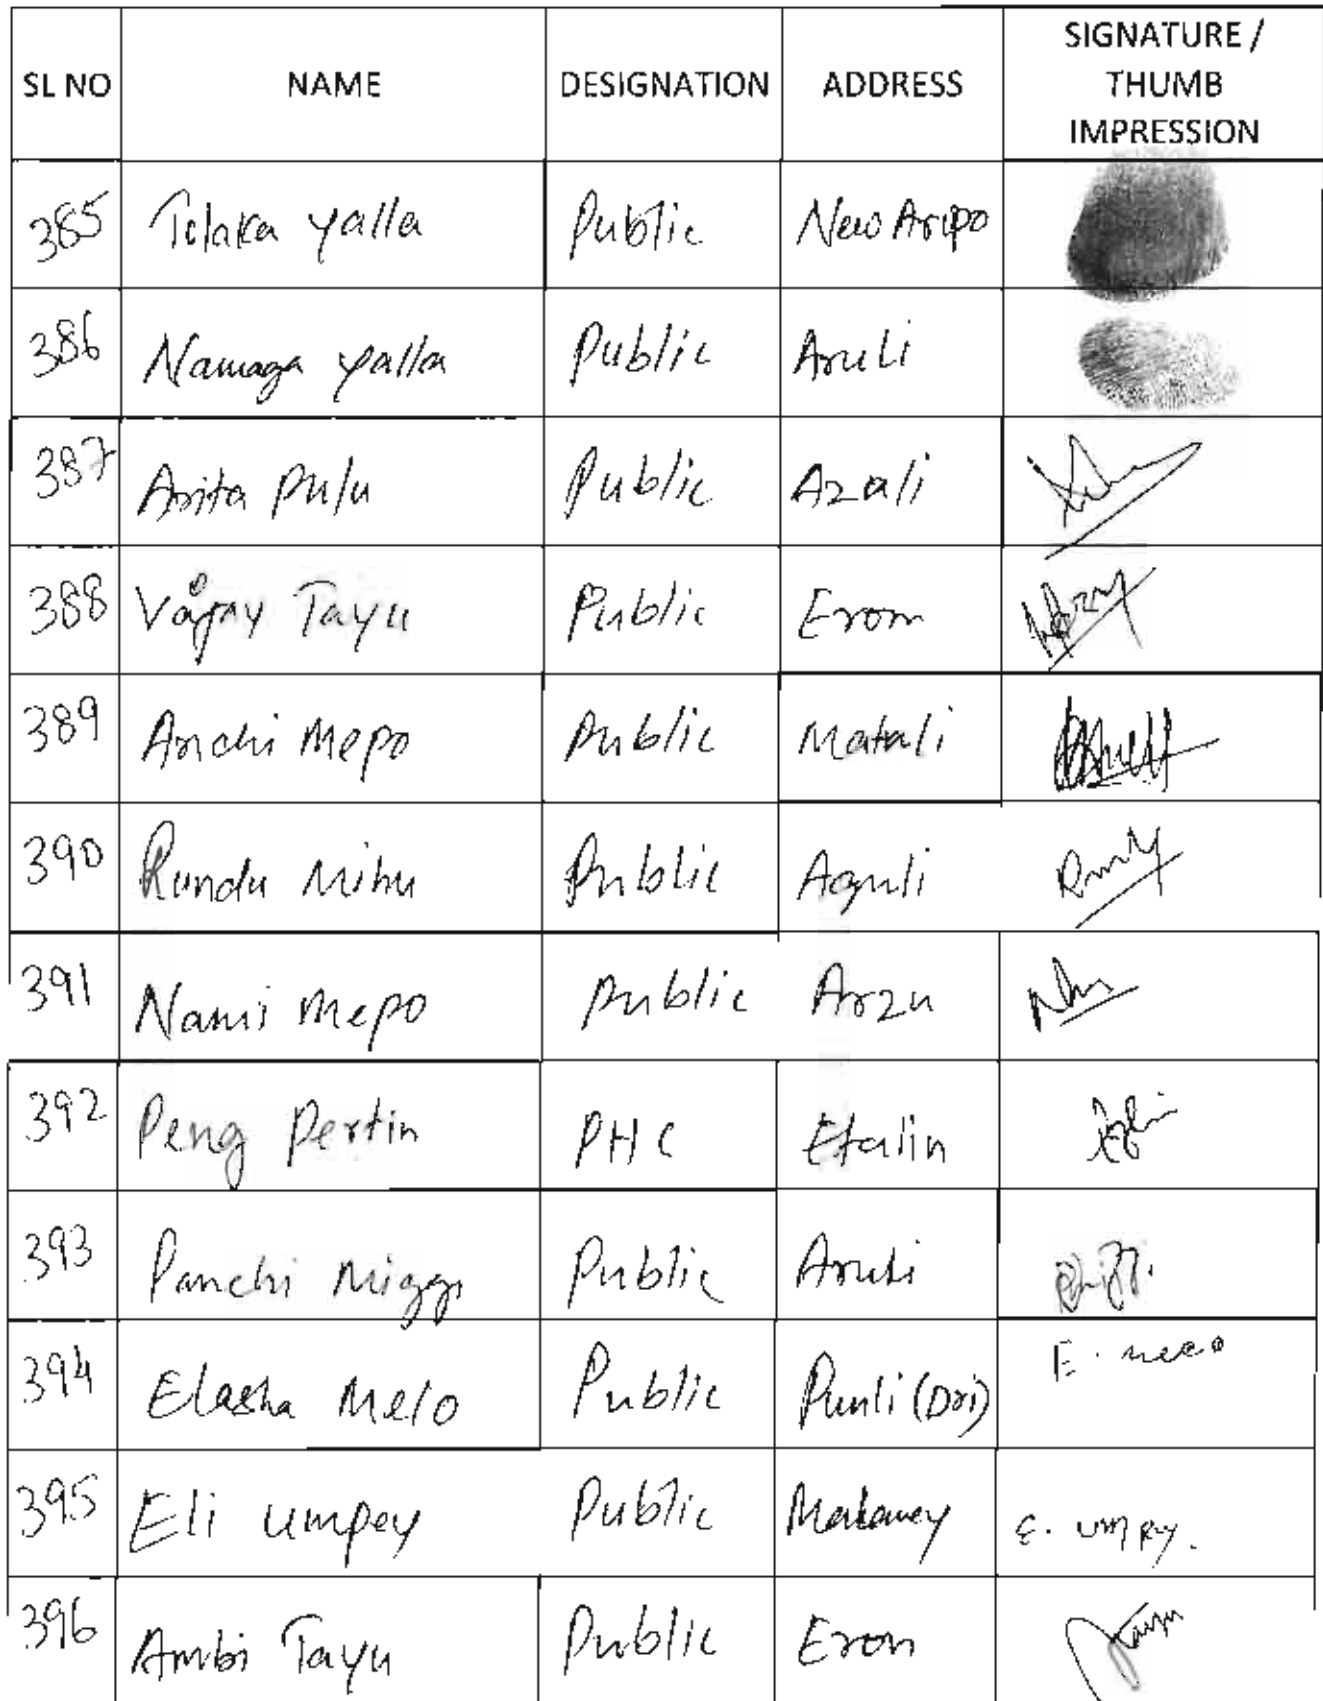 SL NO NAME DESIGNATION ADDRESS SIGNATURE / THUMB IMPRESSION
385 Tilaka Yalla Public New Aripo
386 Namaga Yalla Public Aruli
387 Arita Pulu Public Azali
388 Vijay Tayu Public Eron
389 Anchi Mepo Public Matuli
390 Rundu Mihu Public Aguli
391 Nami Mepo Public Arzu
392 Peng Pertin PHC Etalin
393 Panchi Miggi Public Aruli
394 Elasha Melo Public Punli (Dri) E. Melo
395 Eli Umpey Public E. Umpey.
396 Ambi Tayu Public Eron